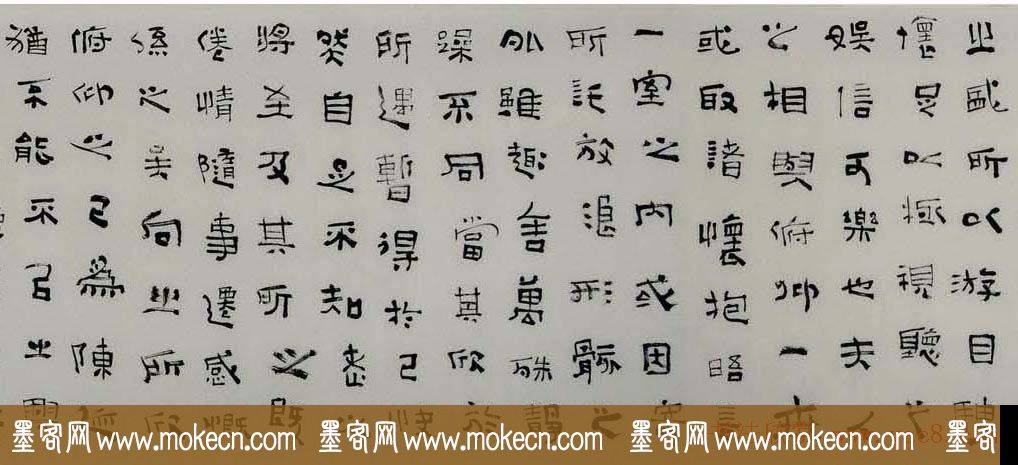 之盛所以游目騁
懷足以極視聽之
娛信可樂也夫人
之相與俯仰一世
或取諸懷抱晤言
一室之內或因寄
所託放浪形骸之
外雖趣舍萬殊靜
躁不同當其欣於
所遇暫得於己快
然自足不知老
將至及其所之既
倦情隨事遷感慨
係之矣向之所欣
俯仰之已為陳
猶不能不以之興
墨客网 www.mokecn.com 墨客网 www.mokecn.com 墨客网 www.mokecn.com 墨客